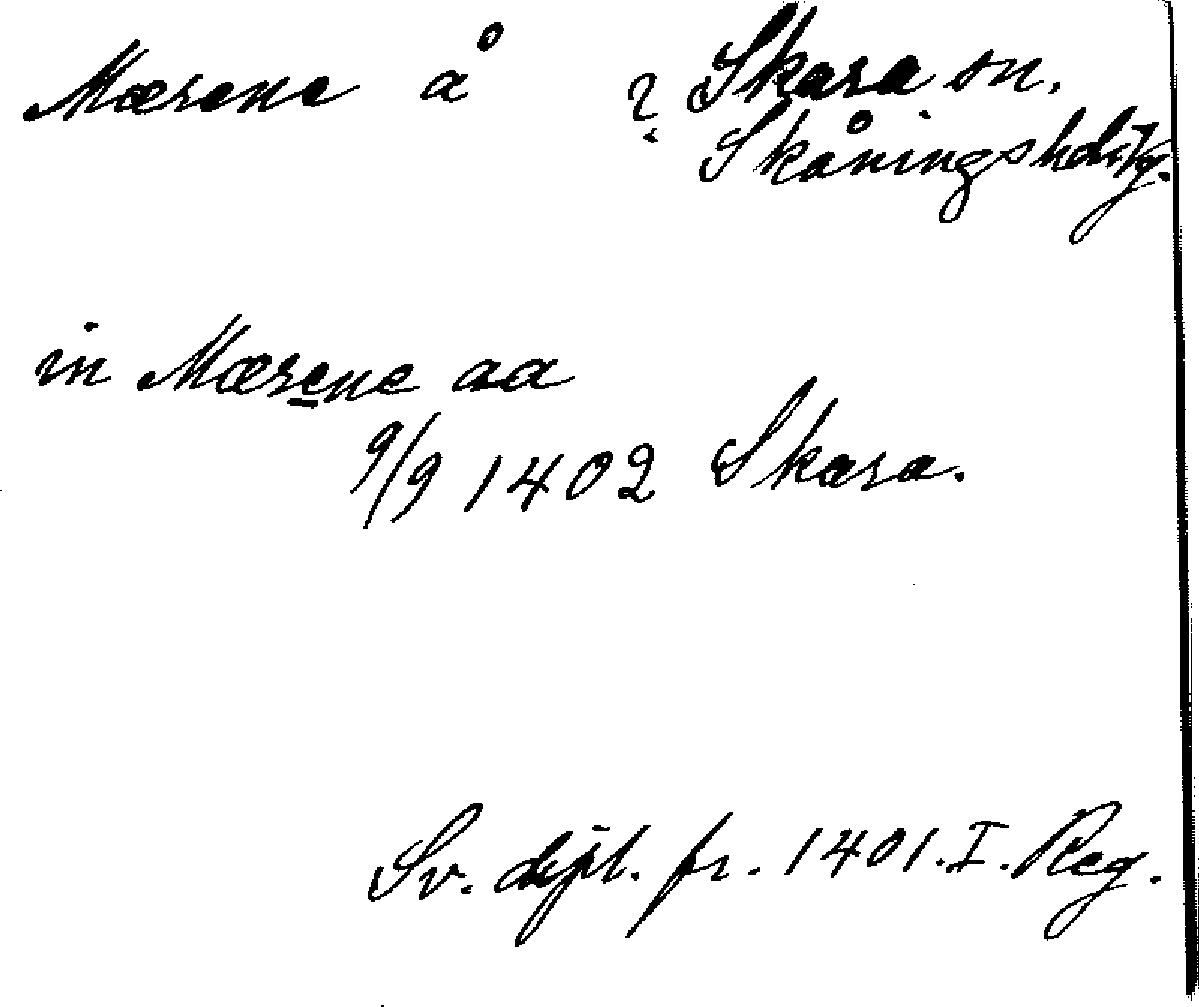 Mærene å ? Skara sn.
Skånings hd.
in Mærene aa
9/9 1402 Skara.
Sv. dipl. fr. 1401. I. Reg.